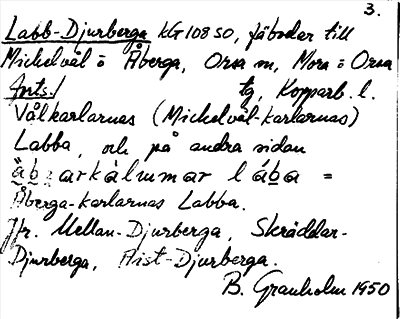 3.
Labb-Djurberga KG 108 SO, fäbodar till
Michelvål o Åberga, Orsa sn, Mora o Orsa
Ants.! tg, Kopparb. l.
Vålkarlarnas (Michelvål-karlarnas)
Labba, och på andra sidan
låba =
Åberga-karlarnas Labba.
Jfr. Mellan-Djurberga, Skräddar-
Djurberga, Arist-Djurberga.
B. Granholm 1950